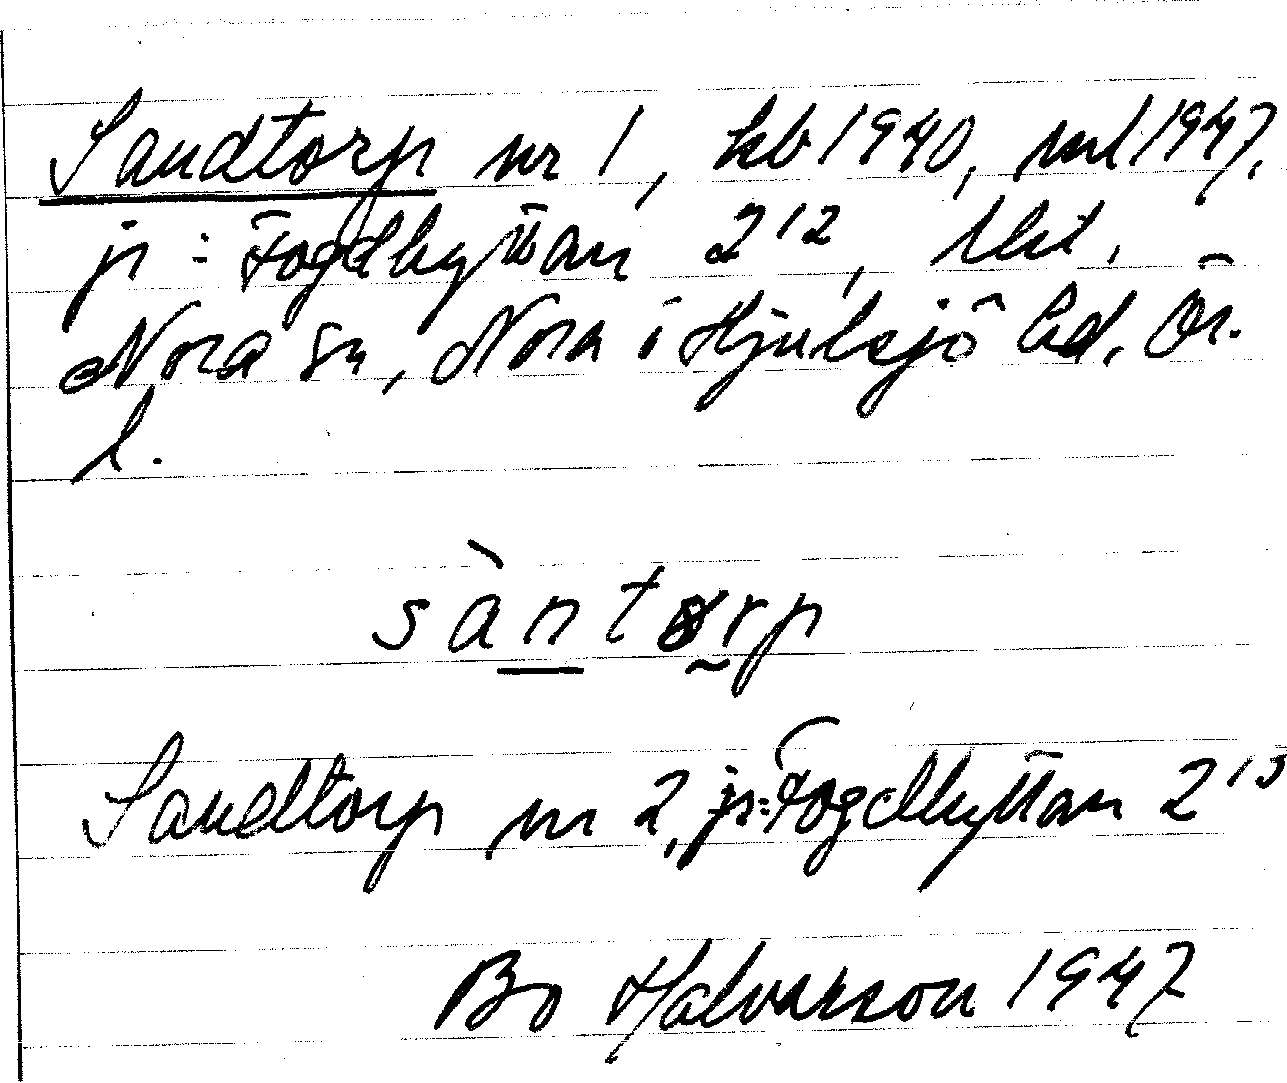 Sandtorp nr 1, kb 1940, ml 1947,
jr = Fogdhyttan 2¹²,
Nora sn, Nora o Hjulsjö hd, Ör.
l.
sàntørp
Sandtorp nr 2, jr = Fogdhyttan 2¹³
Bo Halvarson 1947